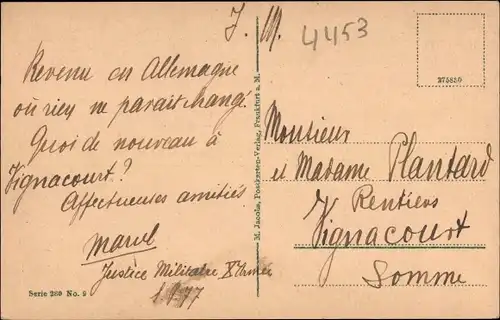 J. M.
4453
275850
Revenu en Allemagne
où rien ne parait changé.
Quoi de nouveau à
Vignacourt?
Affectueuses amitiés
Justice Militaire
Serie 289 No. 9
M. Jacobs, Postkarten-Verlag, Frankfurt a. M.
Monsieur
et Madame Plantard
Rentiers
Vignacourt
Somme